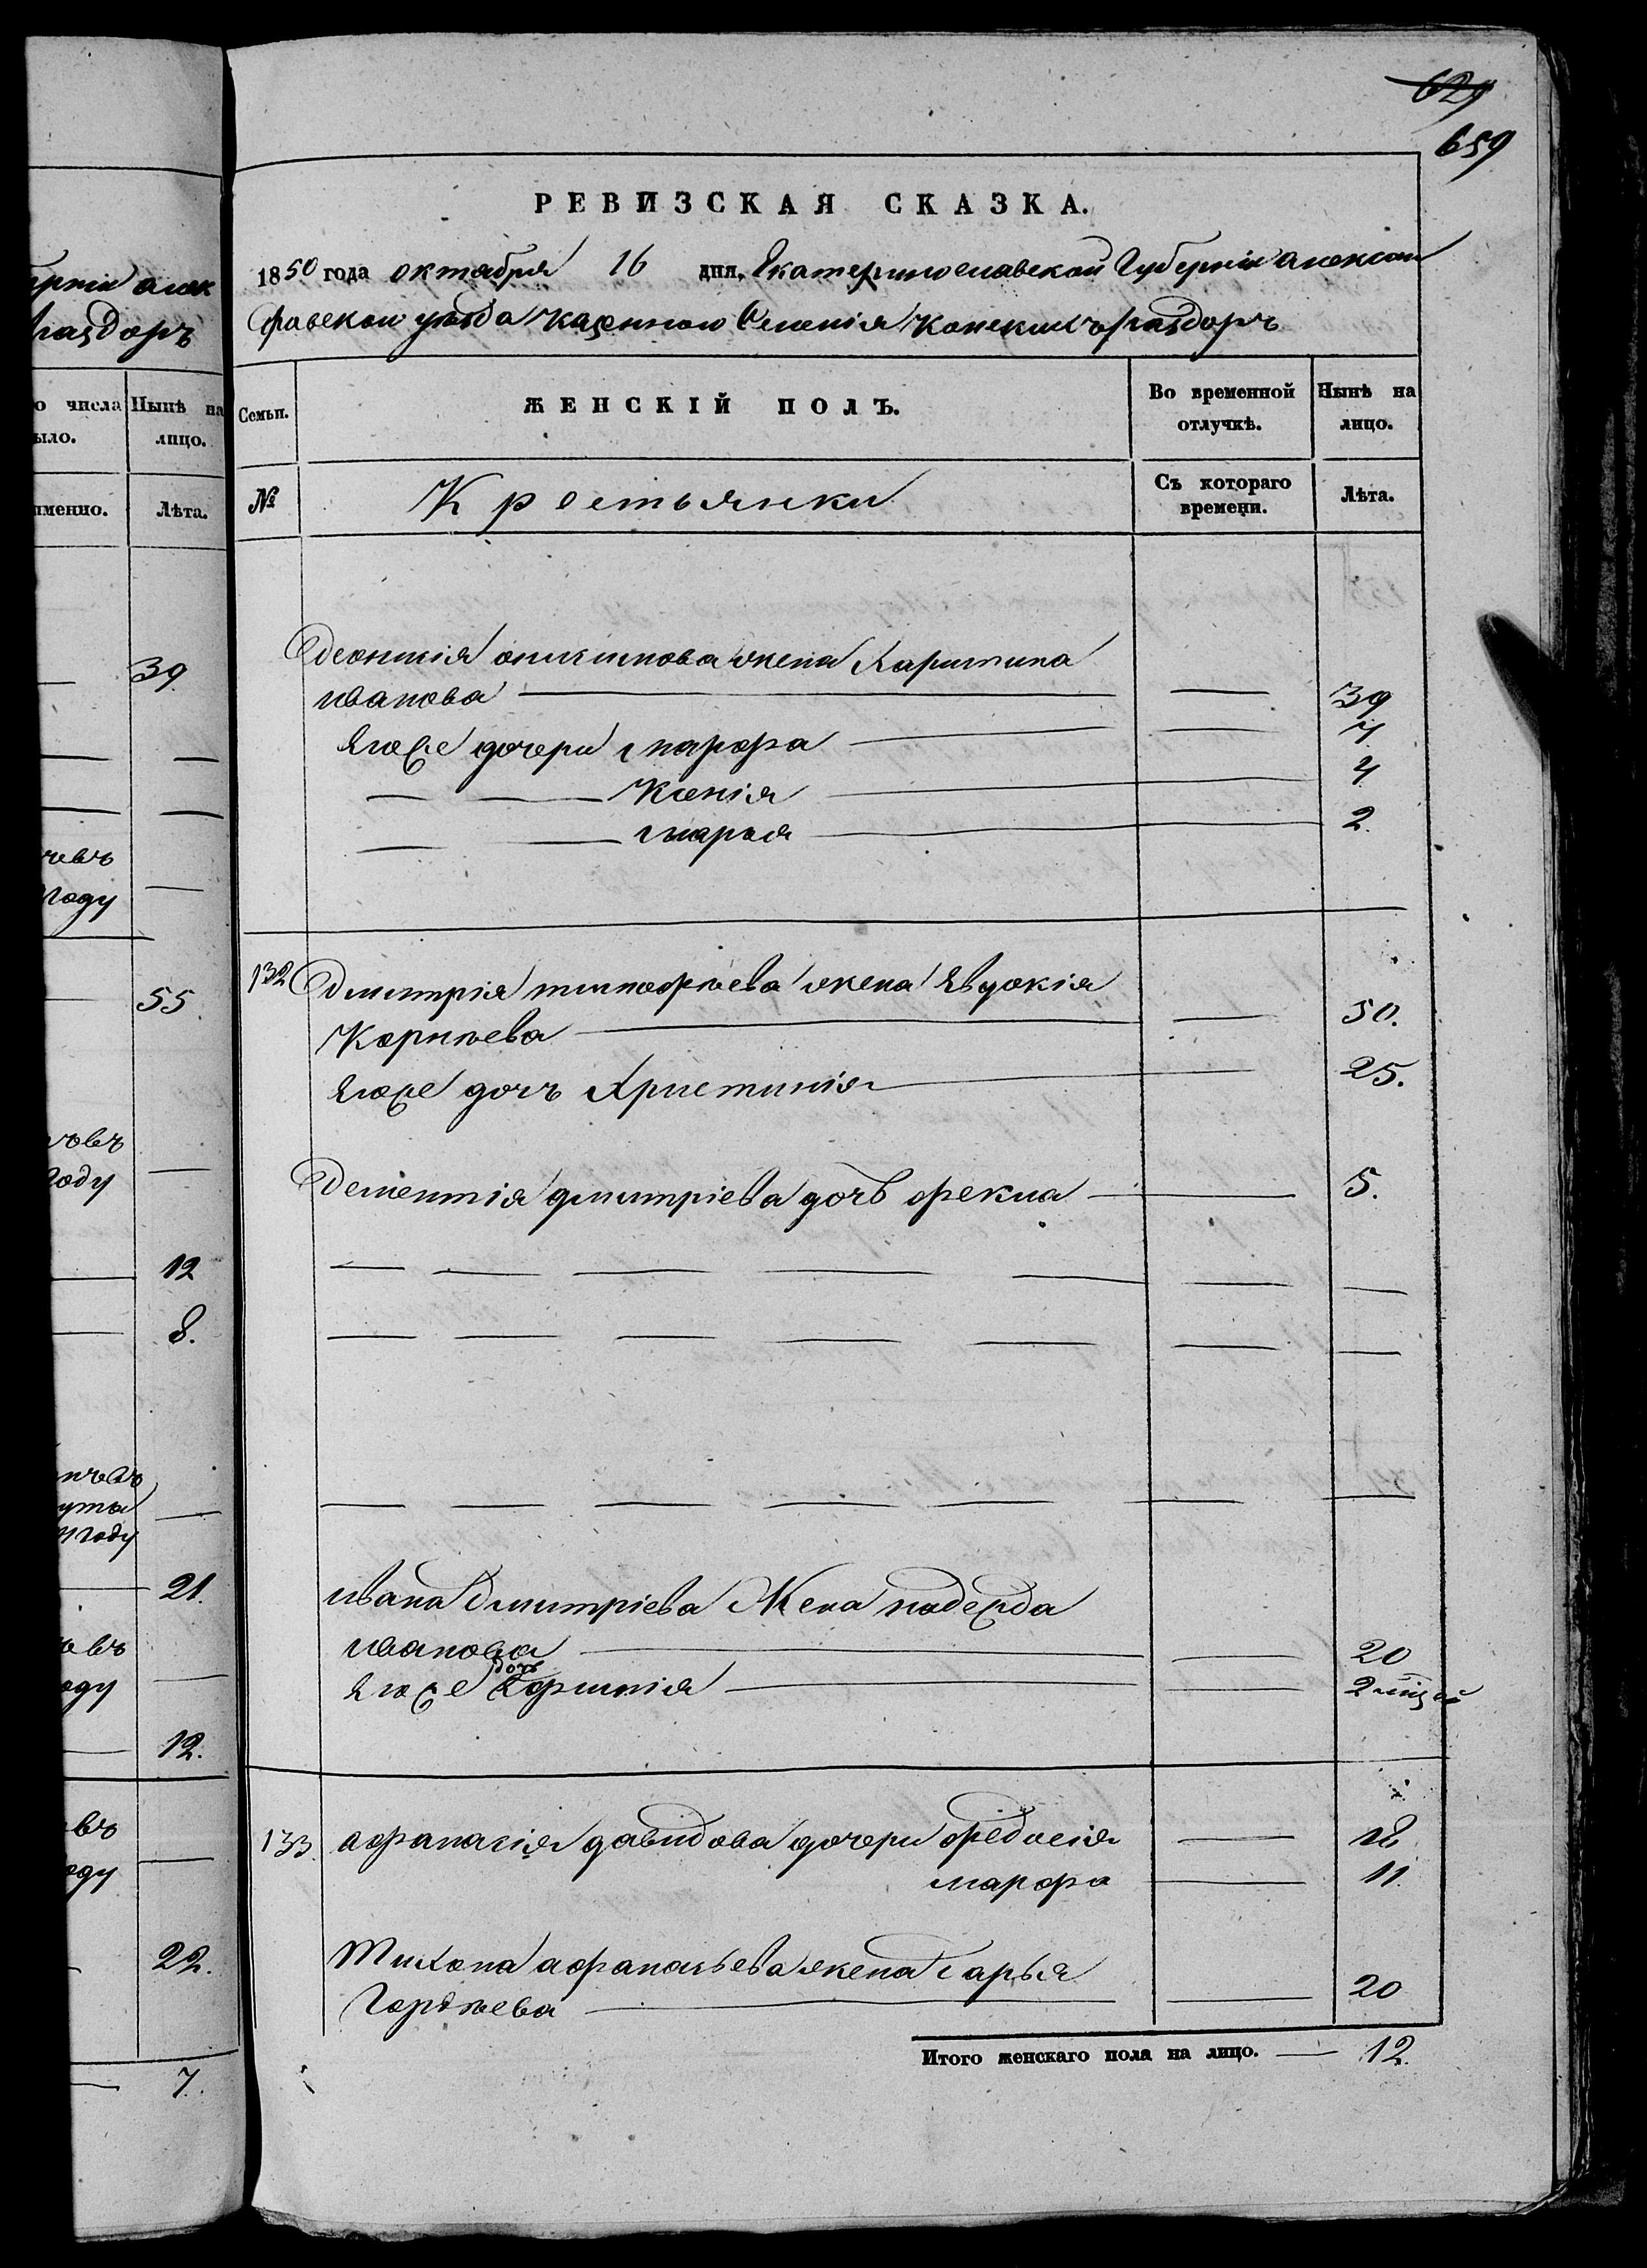 629
659
РЕВИЗСКАЯ СКАЗКА.
1850 года октября 16 дня, Екатеринославской Губерніи алексан
дровскои уѣзда казенного Селенія Конскихъ раздоръ
Семьи.
ЖЕНСКІЙ ПОЛЪ.
Во временной отлучкѣ.
Нынѣ на лицо.
№
Крестьянки
Съ котораго времени.
Лѣта.
жена Харитина
иванова 39
Его же дочери марфа 7
Ксенія 4
марья 2.
132 Дмитрія тимофѣева жена Евдокія
Корнѣева 50.
Его же дочъ Христинія 25.
Дементія дмитріева дочь фекла 5.
ивана Дмитріева Жена надежда
иванова 20
Его же дочь 2 мѣц
133. афанасія давидова дочери федосія 18
марфа 11
Тихона афанасьева жена дарья
Гордѣева 20
Итого женскаго пола на лицо. 12.
рніи алек
раздоръ
о числа
ыло.
Нынѣ на
лицо.
именно.
Лѣта.
39.
году
55.
году
12
8.
году
21.
12.
22.
7.